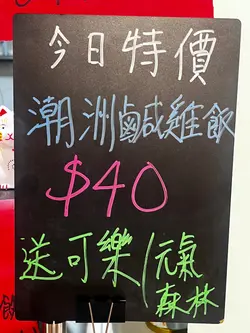 今日特價
潮洲鹹雞飯
$40
送可樂/元氣
森林